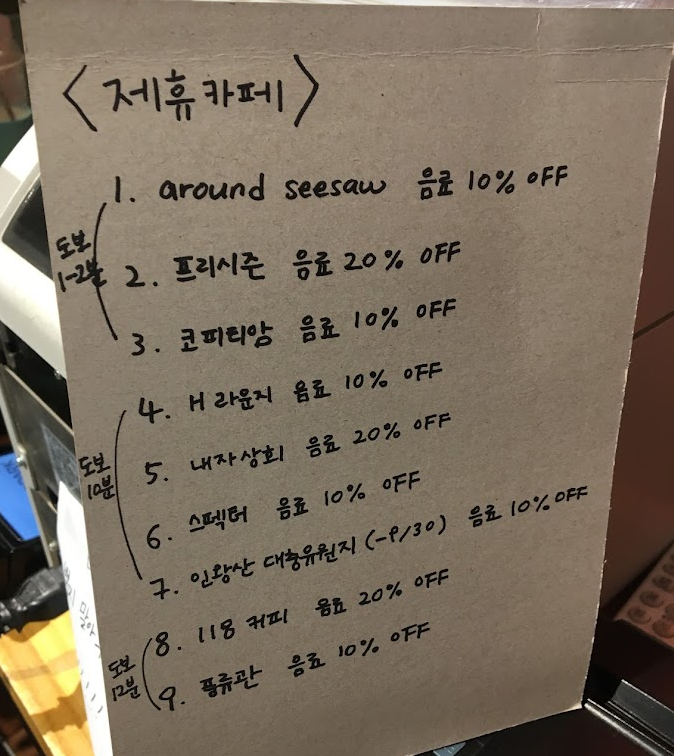 <제휴카페>
도보 1-2분
1. around seesaw 음료 10% OFF
2. 프리시즌 음료 20% OFF
3. 코피티암 음료 10% OFF
도보 10분
4. H 라운지 음료 10% OFF
5. 내자상회 음료 20% OFF
6. 스펙터 음료 10% OFF
7. 인왕산 대충유원지 (-9/30) 음료 10% OFF
도보 12분
8. 118 커피 음료 20% OFF
9. 풍류관 음료 10% OFF